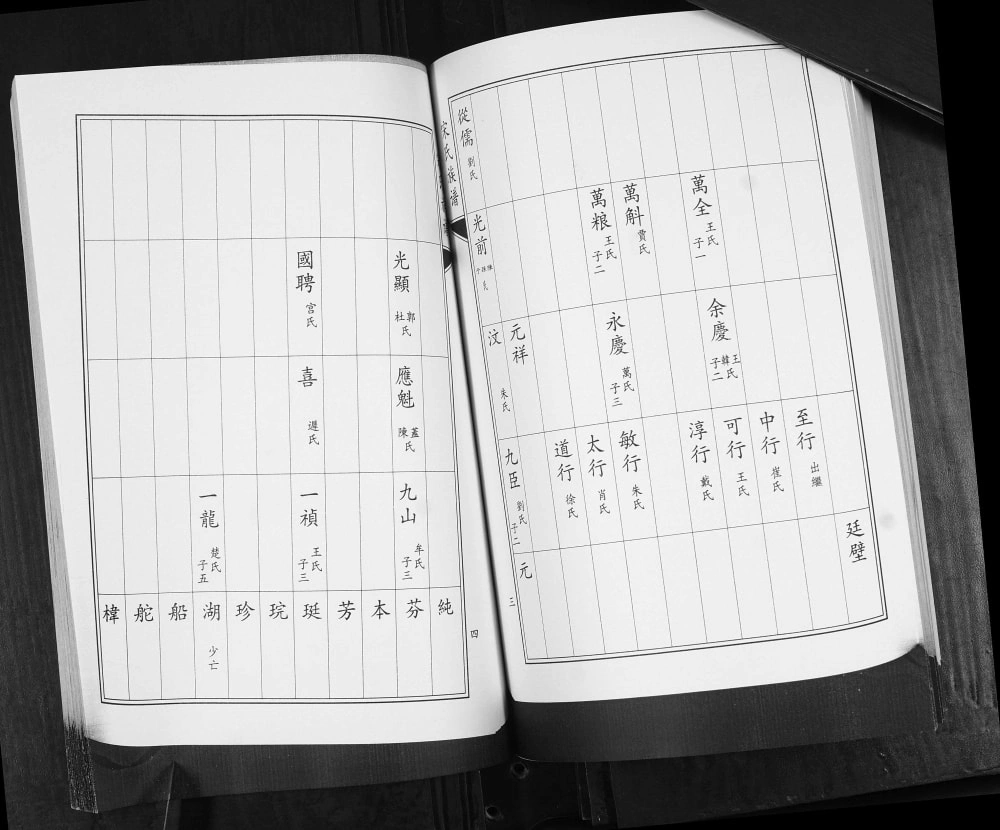 萬全 王氏 子一
萬斛 貫氏
萬粮 王氏 子二
從儒 劉氏
余慶 王氏 韓氏 子二
永慶 萬氏 子三
光前
至行 出繼
中行 崔氏
可行 王氏
淳行 戴氏
敏行 朱氏
太行 肖氏
道行 徐氏
元祥
汶 朱氏
廷壁
九臣 劉氏 子二
元
三
氏族譜
光顯 郭氏 杜
國聘 宮氏
應魁 蓋氏 陳
喜 遲氏
九山 牟氏 子三
一禎 王氏 子三
一龍 楚氏 子五
純
芬
本
芳
珽
琓
珍
湖 少亡
船
舵
樟
四